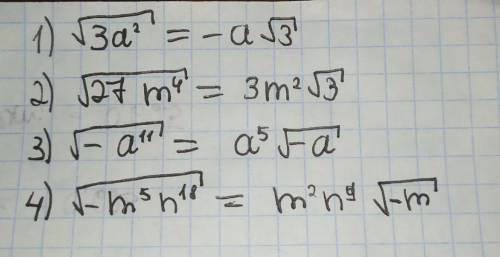 1) √3a² = -a√3
2) √27 m⁴ = 3m²√3
3) √-a¹¹ = a⁵√-a
4) √-m⁵n¹⁸ = m²n⁹ √-m